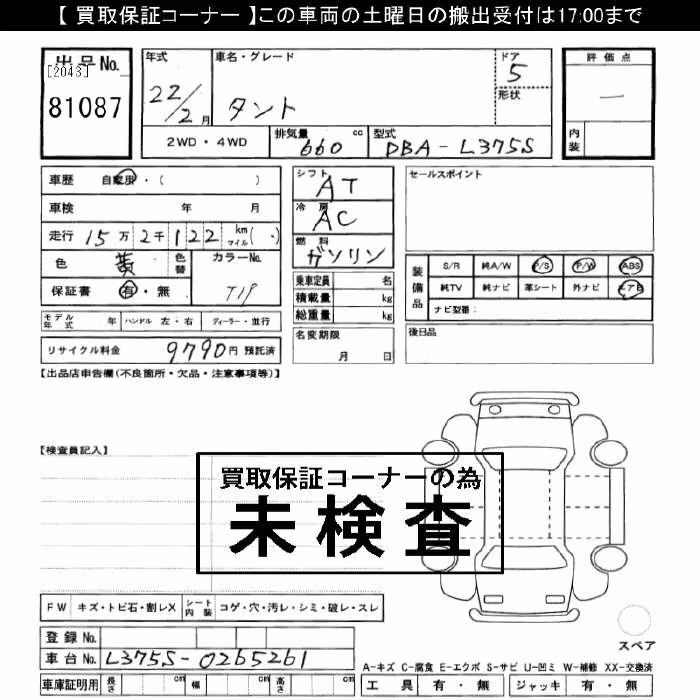 【 買取保証コーナー 】この車両の土曜日の搬出受付は17:00まで
出品No.
[2043]
81087
年式
22/2月
車名・グレード
タント
ドア
5
形状
評価点
―
内装
2WD・4WD
排気量
660
cc
型式
DBA-L375S
車歴 自家用・( )
車検 年 月
走行 15万2千122 km マイル( )
色 黄 色替 カラーNo.
T19
保証書 有・無
シフト
AT
冷房
AC
燃料
ガソリン
乗車定員 名
積載量 kg
総重量 kg
セールスポイント
装備品
S/R 純A/W P/S P/W ABS
純TV 純ナビ 革シート 外ナビ エアB
ナビ型番:
モデル年式 年 ハンドル 左・右 ディーラー・並行
リサイクル料金 9790円 預託済
名変期限
月 日
後日品
【出品店申告欄(不良箇所・欠品・注意事項等)】
【検査員記入】
買取保証コーナーの為
未検査
FW キズ・トビ石・割レX シート内装 コゲ・穴・汚レ・シミ・破レ・スレ
登録No.
車台No. L375S-0265261
車庫証明用 長さ cm 幅 cm 高さ cm
スペア
A-キズ C-腐食 E-エクボ S-サビ U-凹ミ W-補修 XX-交換済
工具 有・無 ジャッキ 有・無